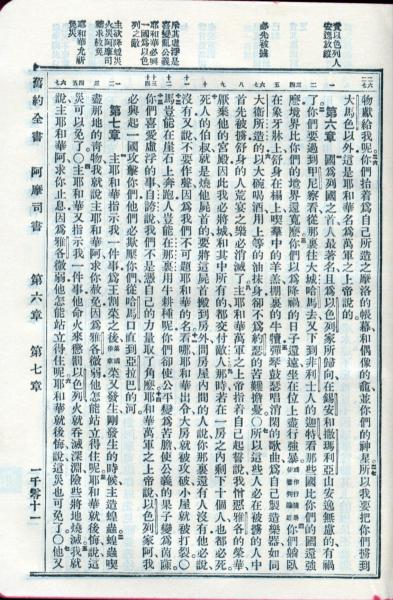 責以色列人
安逸放縱
必先被擄
斥其虛浮是
喜變亂公義
耶和華必興
一國爲以色
列之敵
主欲降蝗災
火災阿摩司
籲求赦免
耶和華允祈
免災
物獻給我呢你們抬着爲自己所造之摩洛的帳幕和偶像的龕並你們的神星所以我要把你們擄到
大馬色以外這是耶和華名爲萬軍之上帝說的
第六章 國爲列國之首人最著名且爲以色列家所歸向在錫安和撒瑪利亞山安逸無慮的有禍
了你們要過到甲尼察看從那裏往大城哈馬去又下到非利士人的迦特看那些國比你們的國還強
麽境界比你們的境界還寬麽你們以爲降禍的日子還遠坐在位上盡行強暴你們躺臥
在象牙牀上舒身在榻上喫羣中的羊羔棚裏的牛犢彈琴鼓瑟唱消閒的歌曲爲自己製造樂器如同
大衞所造的以大碗喝酒用上等的油抹身卻不爲約瑟的苦難擔憂〇所以這些人必在被擄的人中
首先被擄舒身的人荒宴之樂必消滅了主耶和華萬軍之上帝指着自己起誓說我憎惡雅各的榮華
厭棄他的宮殿因此我必將城和其中所有的都交付敵人那時若在一房之內剩下十個人也都必死
死人的伯叔就是燒他屍首的要將這屍首搬到房外問房屋內間的人說你那裏還有人沒有他必說
沒有又說不要作聲因爲我們不可題耶和華的名看哪耶和華出令大房就被攻破小屋就被打裂〇
馬豈能在崖石上奔跑人豈能在那裏用牛耕種呢你們卻使公平變爲苦膽使公義的果子變爲茵蔯
你們喜愛虛浮的事自誇說我們不是憑自己的力量取了角麽耶和華萬軍之上帝說以色列家阿我
必興起一國攻擊你們他們必欺壓你們從哈馬口直到亞拉巴的河
第七章 主耶和華指示我一件事爲王割菜之後菜又發生剛發生的時候主造蝗蟲蝗蟲喫
盡那地的青物我就說主耶和華阿求你赦免因爲雅各微弱他怎能站立得住呢耶和華就後悔說這
災可以免了〇主耶和華又指示我一件事他命火來懲罰以色列火就吞滅深淵險些將地燒滅我就
說主耶和華阿求你止息因爲雅各微弱他怎能站立得住呢耶和華就後悔說這災也可免了〇他又
舊約全書 阿摩司書 第六章 第七章 一千零十一